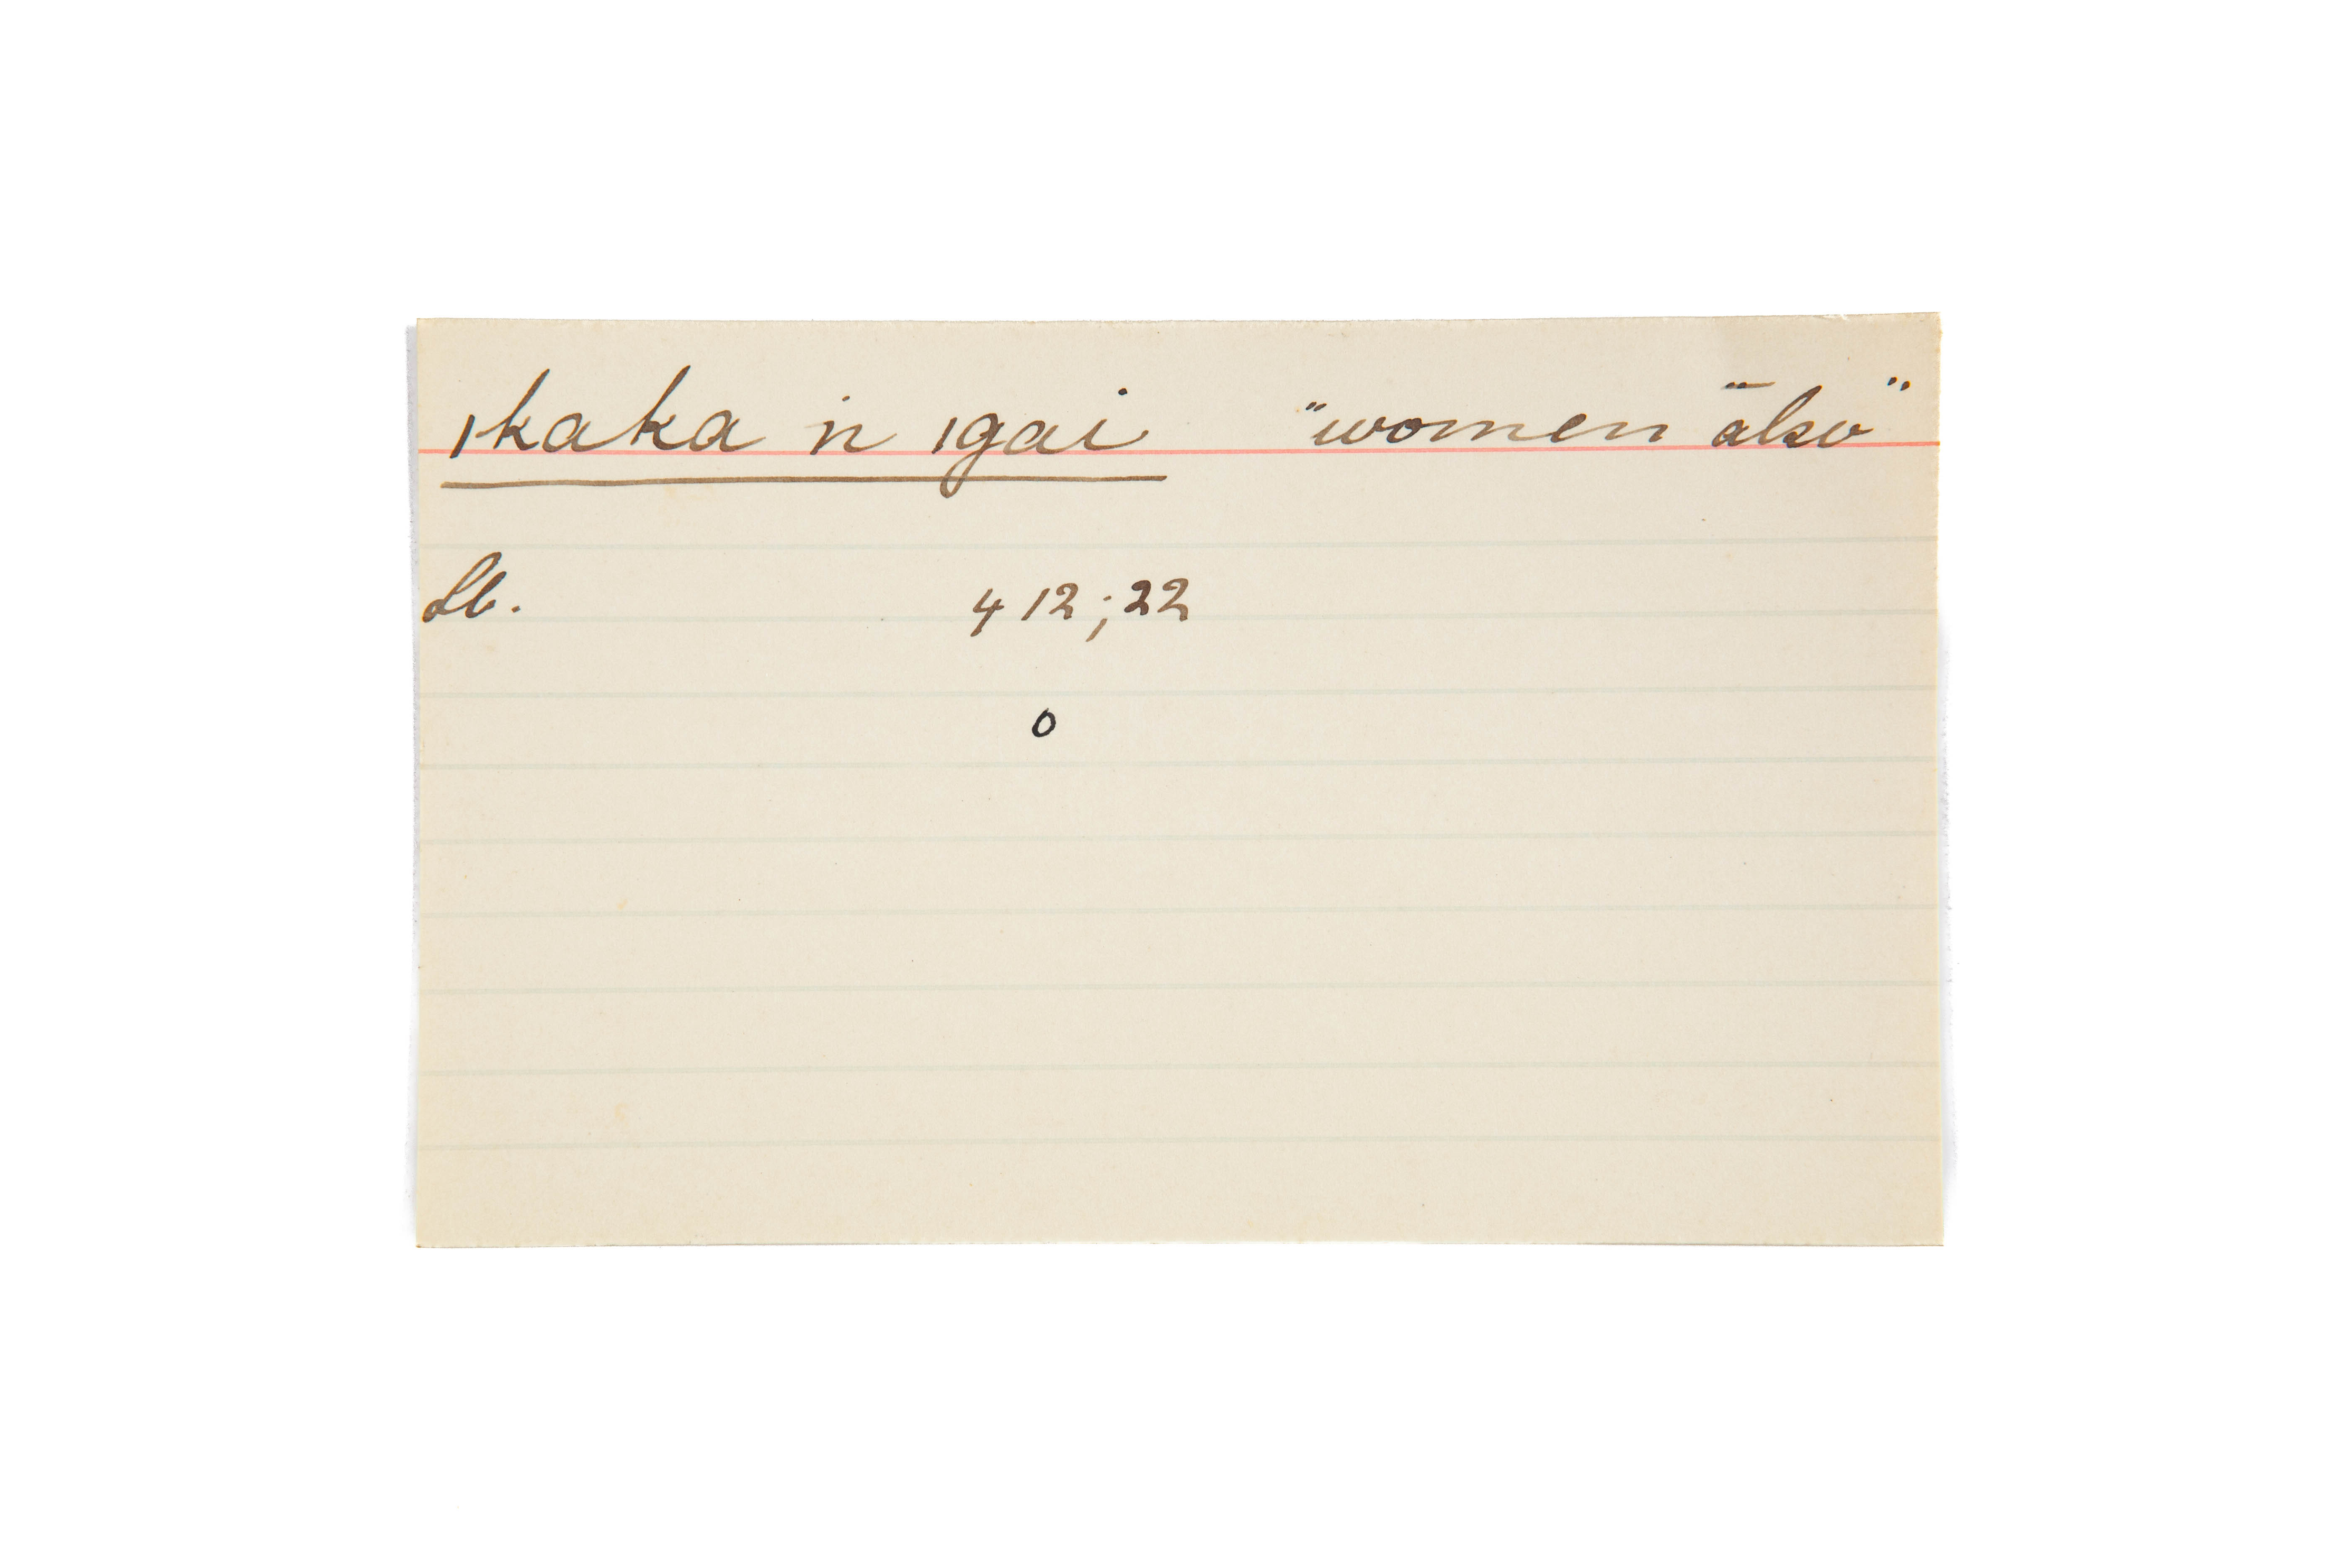 ıkaka ń ıgai "women also"
Lb. 412;22
o